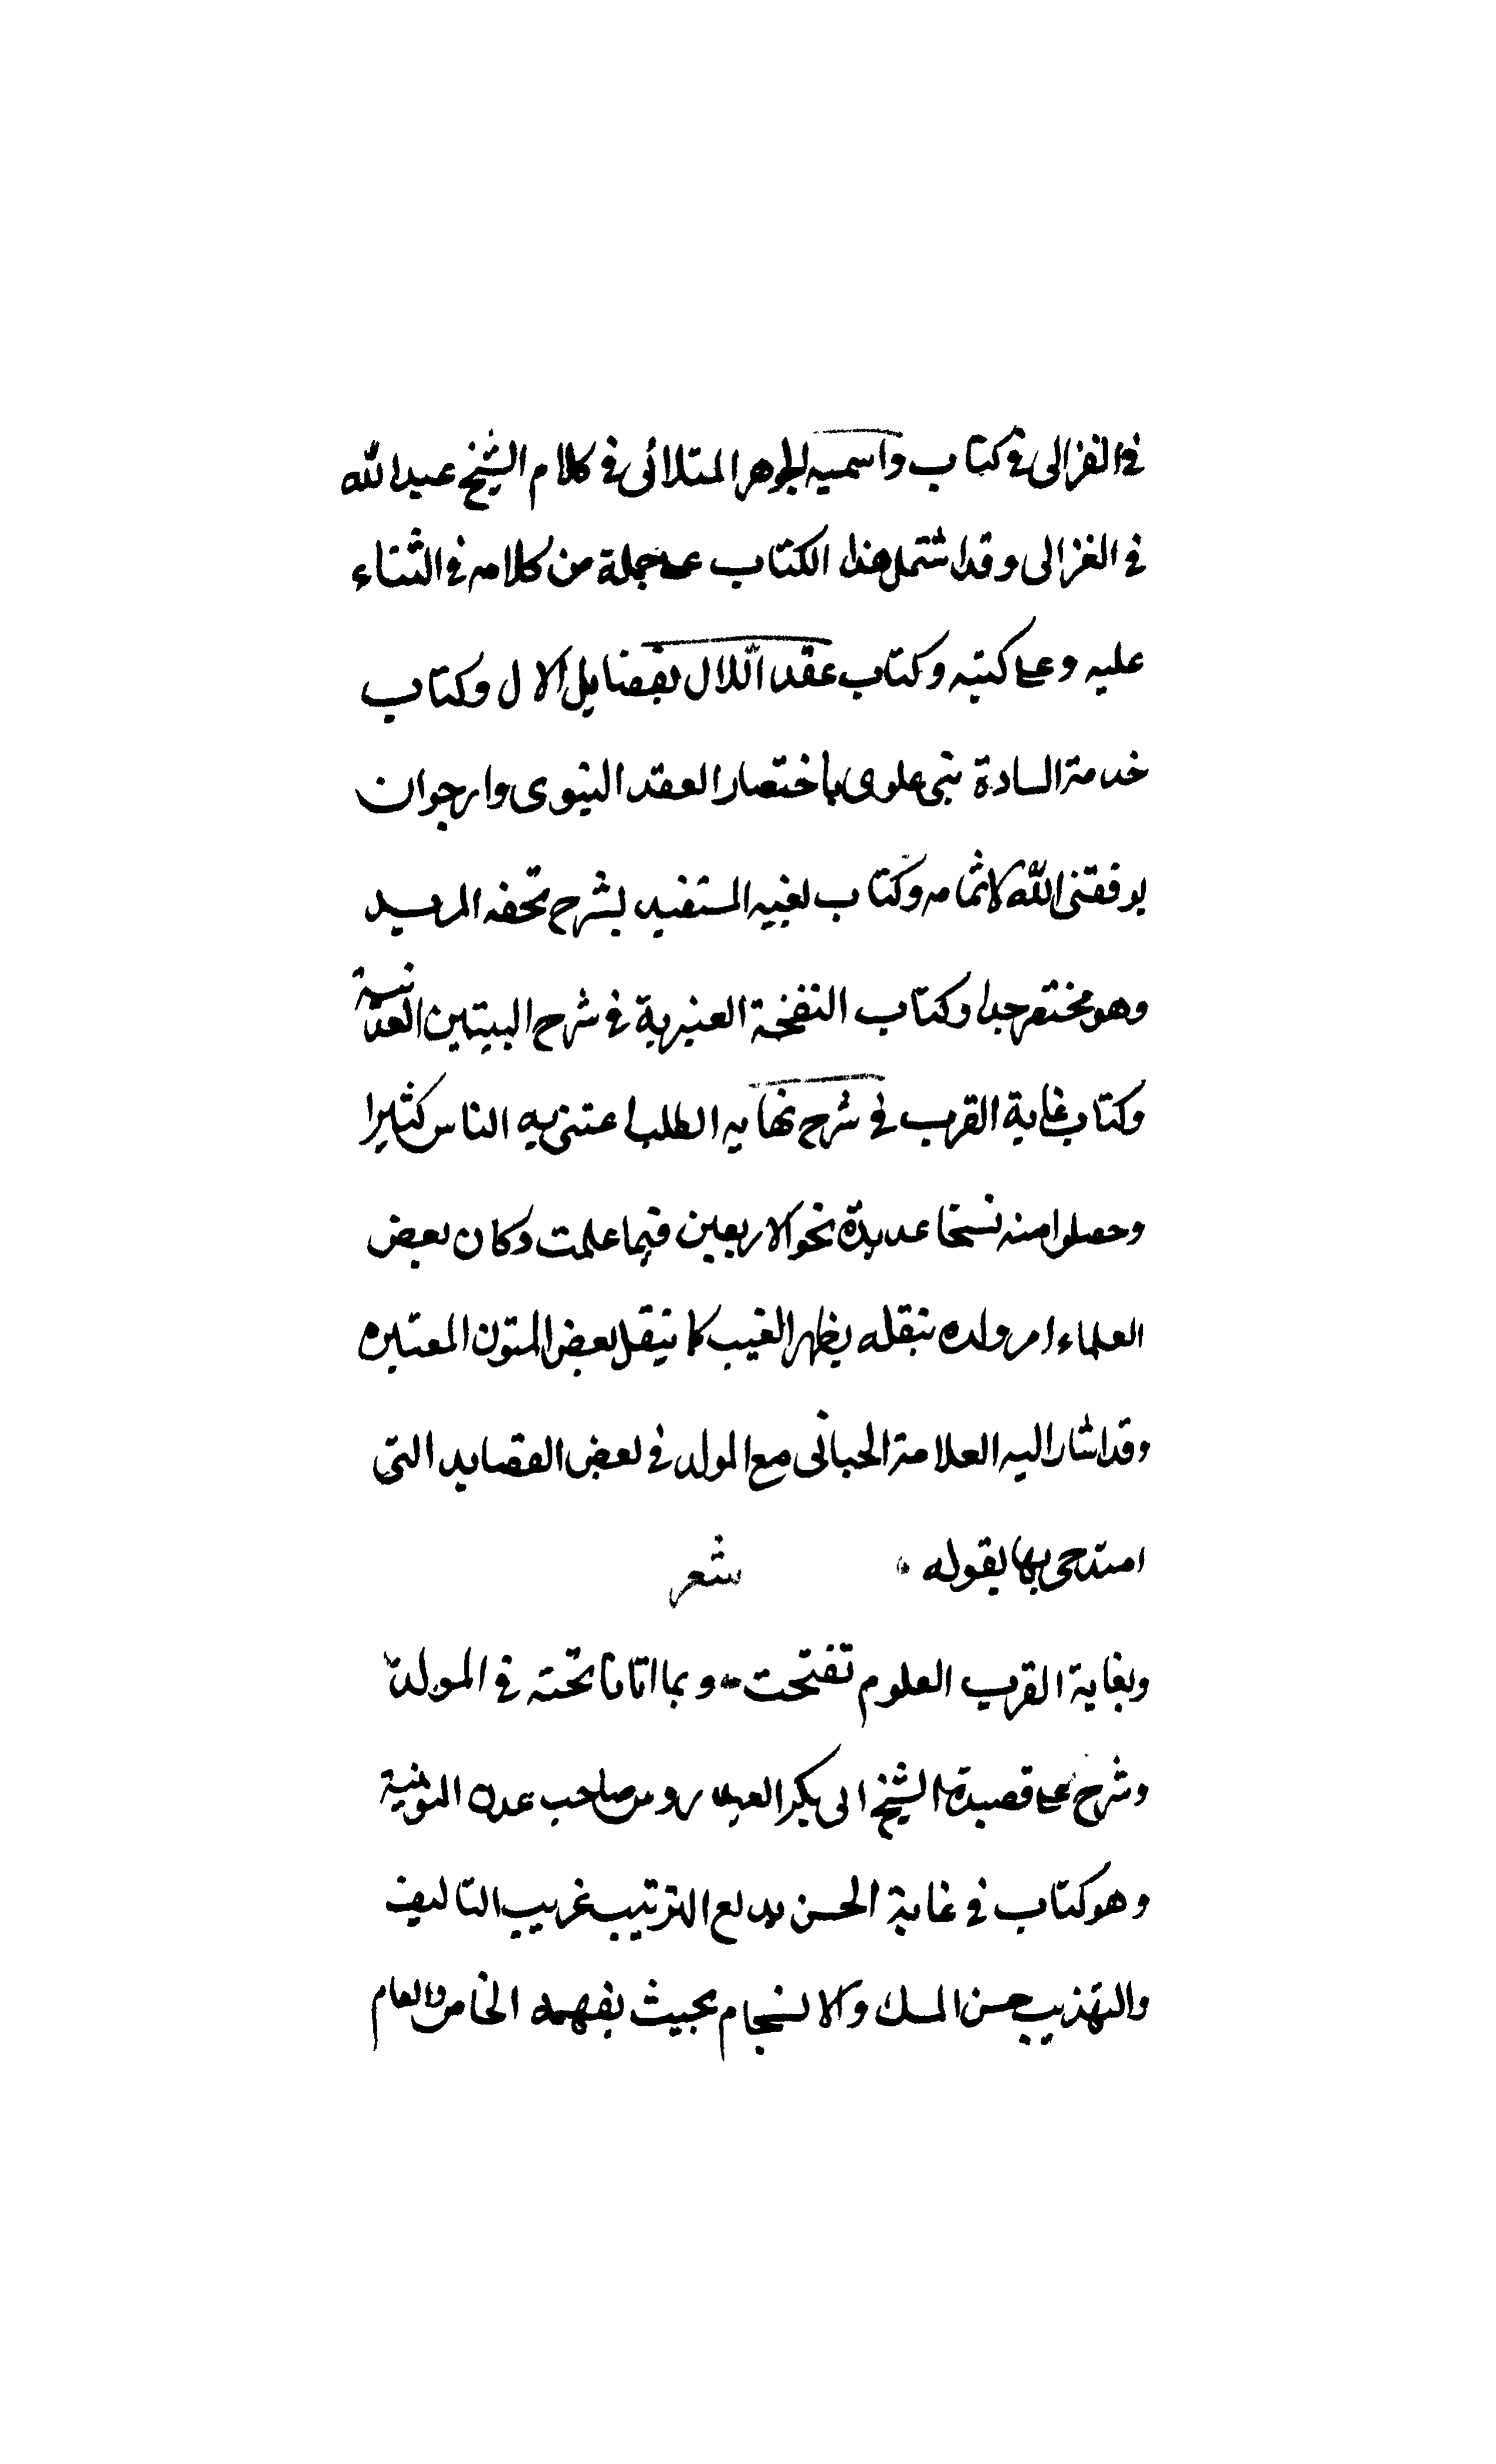 في الغزالى في كتاب واسميه الجوهر المتلائى في كلام الشيخ عبدالله
في الغزالى وقد اشتمل هذا الكتاب على جملة من كلامه في الثناء
عليه وعلى كتبه وكتاب عقد اللال بفضايل الال وكتاب
خدمة السادة بنى علوى باختصار العقد النبوى وارجوان
يوفقنى الله لاتمامه وكتاب بغيه المستفيد بشرح تحفه المريد
وهو مختصر جدا وكتاب النفخة العنبرية في شرح البيتين العدنية
وكتاب غاية القرب في شرح نهايه الطلب اعتنى به الناس كثيرا
وحصلوا منه نسخا عديدة نحو الاربعين فيما علمت وكان بعض
العلماء امر ولده بنقله بظهر الغيب كما ينقل بعض المتون المعتبره
وقد اشار اليه العلامة الحبانى مع المولد في بعض القصايد التى
امتدحى بها بقوله شعر
وبغاية القرب العلوم تفتحت وبما اتانا تحته في المولد
وشرح على قصيدة الشيخ ابى بكر العيدروس صاحب عدن النونية
وهو كتاب في غاية الحسن بديع الترتيب غريب التاليف
والتهذيب حسن المسك والانسجام بحيث يفهمه الخاص والعام